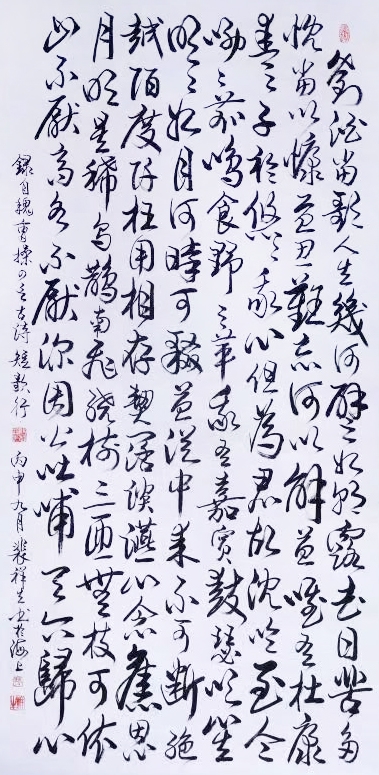 對酒當歌人生幾何譬如朝露去日苦多
慨當以慷憂思難忘何以解憂唯有杜康
青々子衿悠々我心但為君故沈吟至今
呦々鹿鳴食野之苹我有嘉賓鼓瑟吹笙
明々如月何時可掇憂從中來不可斷絕
越陌度阡枉用相存契闊談讌心念舊恩
月明星稀烏鵲南飛繞樹三匝無枝可依
山不厭高水不厭深周公吐哺天下歸心
錄自魏曹操四言古詩短歌行 丙申九月裴祥書於海上